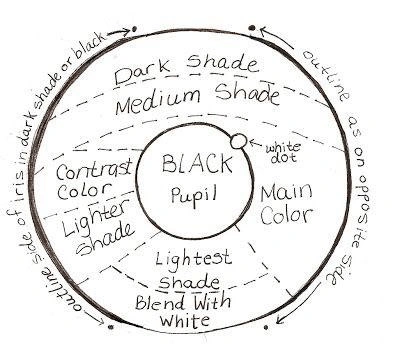 outline side of Iris in dark shade or black
outline as on opposite side
Dark Shade
Medium Shade
white
dot
BLACK
Pupil
Contrast
Color
Lighter
Shade
Main
Color
Lightest
Shade
Blend With
White